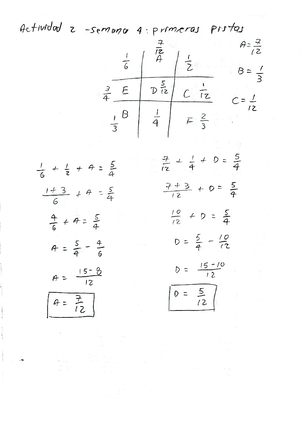 Actividad 2 - semana 4: primeras pistas
1/6 7/12 A 1/2
3/4 E D 5/12 C 1/12
1/3 B 1/4 F 2/3
A = 7/12
B = 1/3
C = 1/12
1/6 + 1/2 + A = 5/4
(1+3)/6 + A = 5/4
4/6 + A = 5/4
A = 5/4 - 4/6
A = (15-8)/12
A = 7/12
7/12 + 1/4 + D = 5/4
(7+3)/12 + D = 5/4
10/12 + D = 5/4
D = 5/4 - 10/12
D = (15-10)/12
D = 5/12